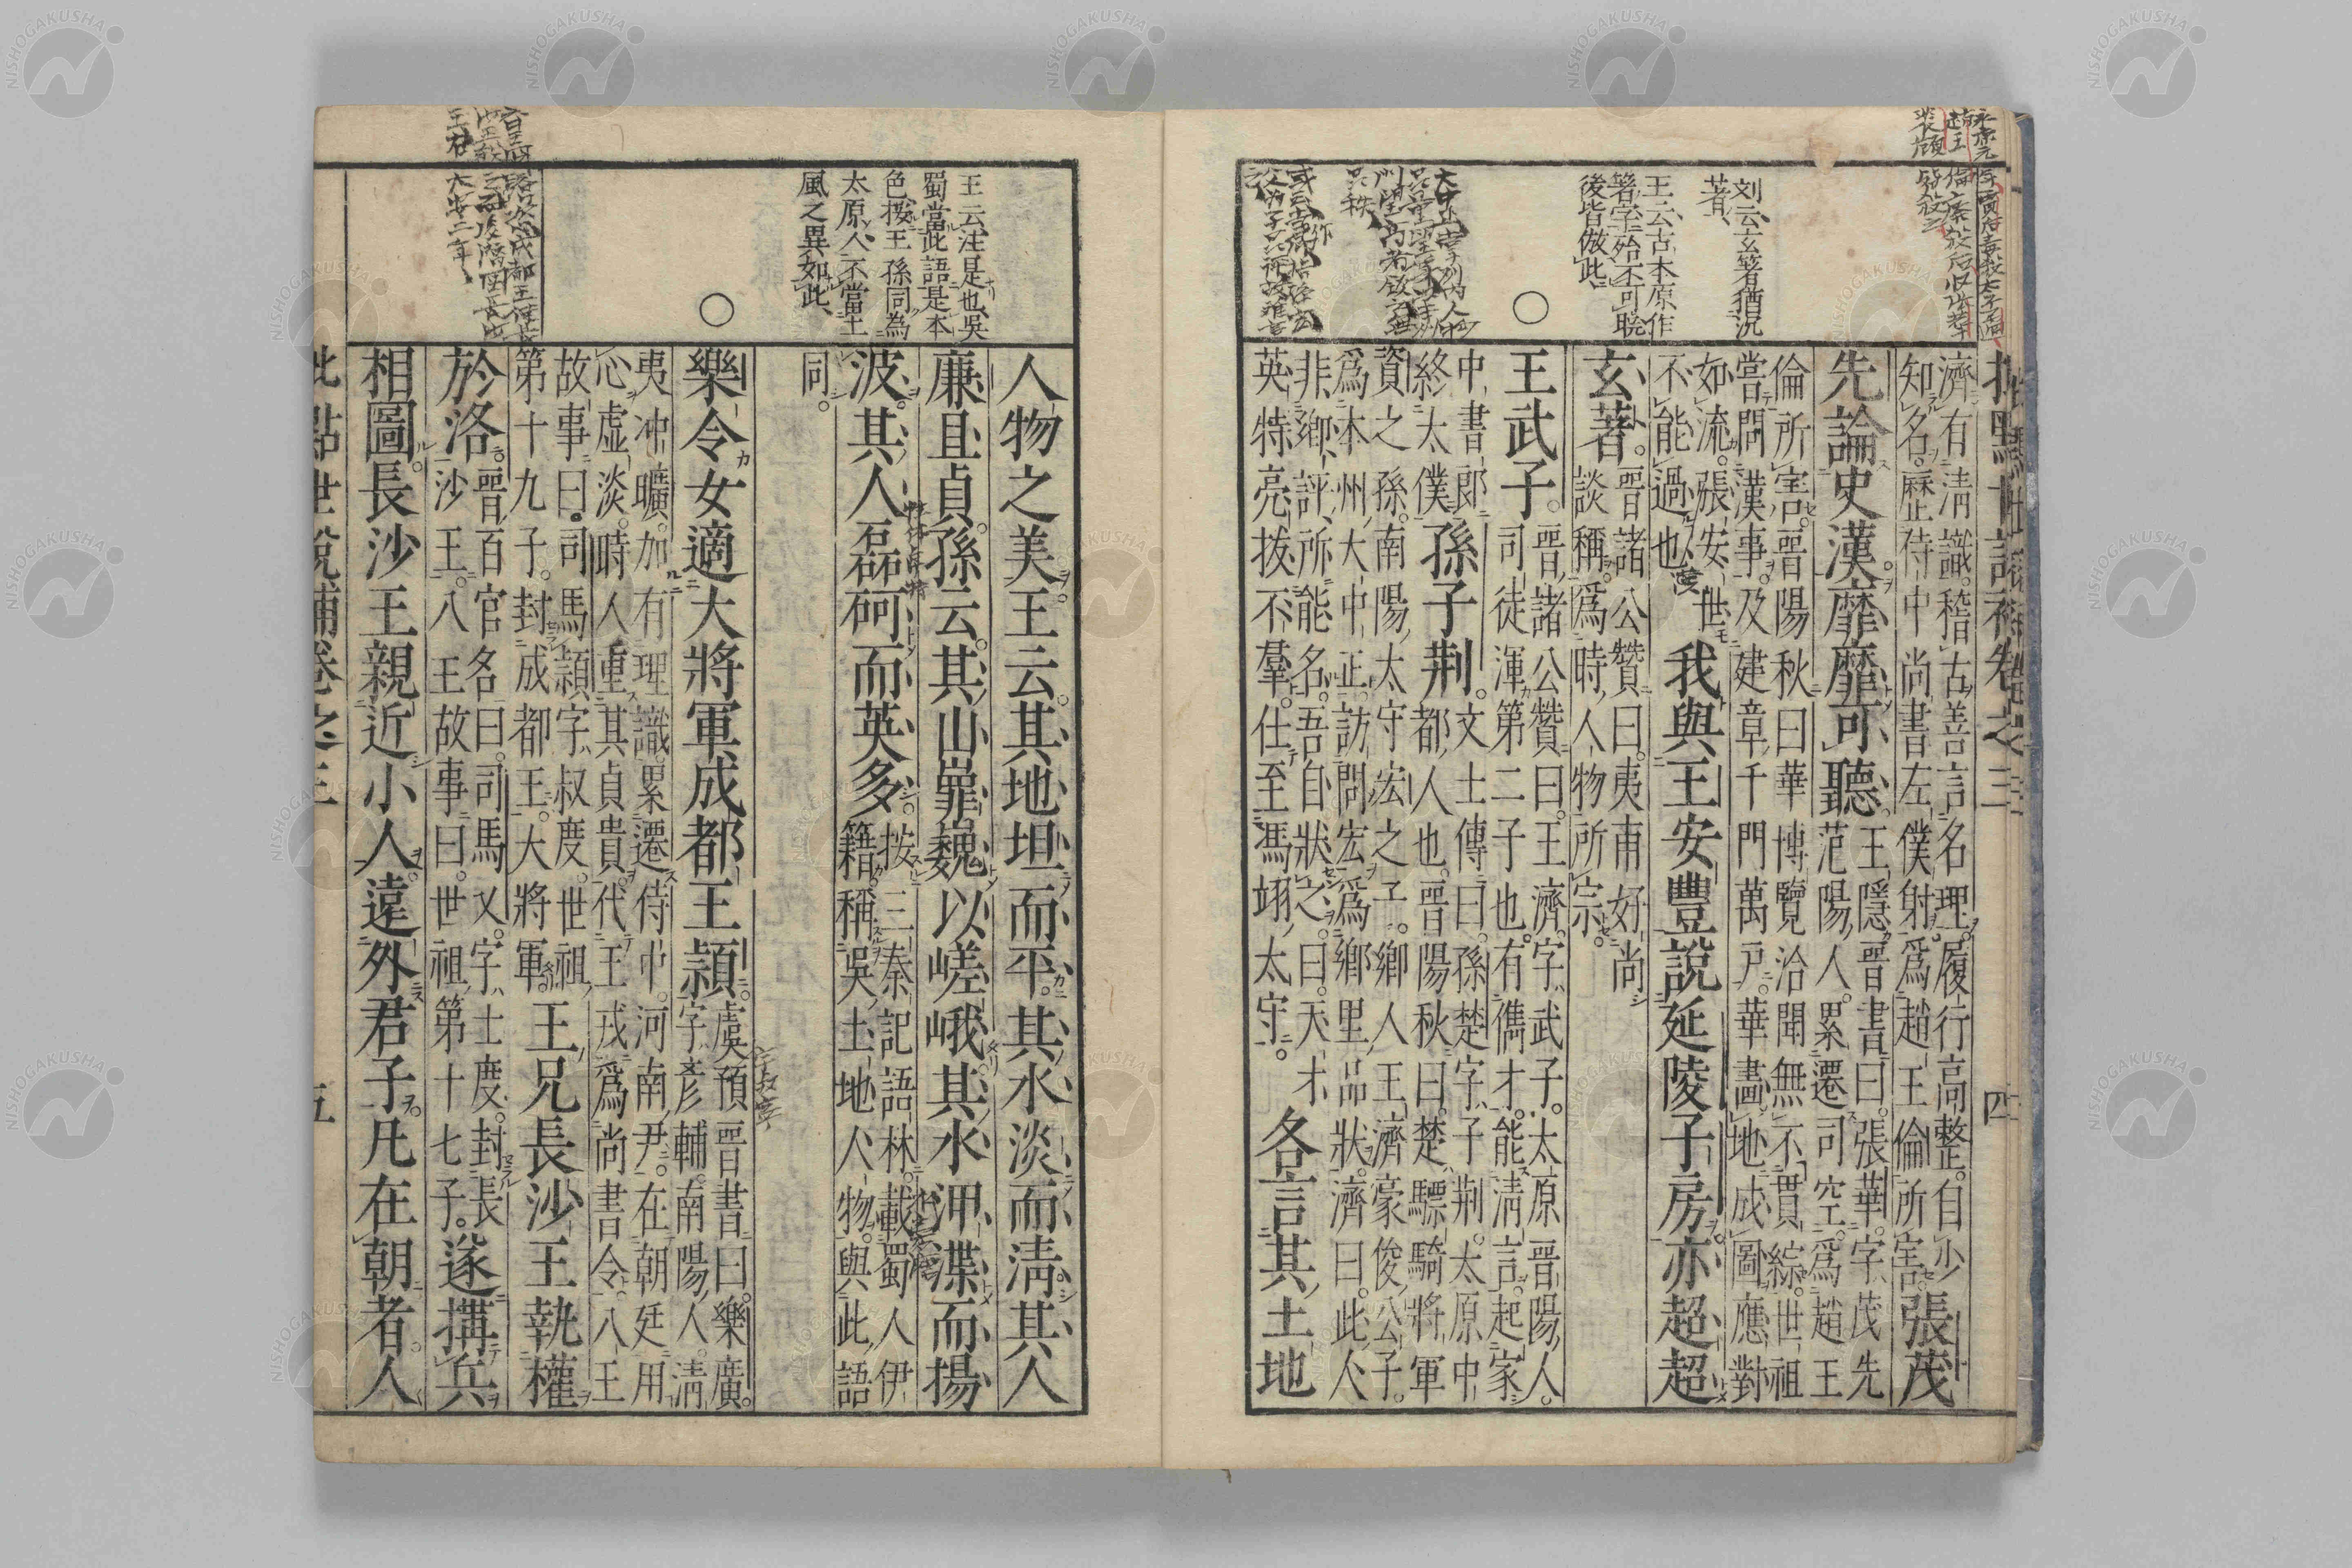 批點世說補卷之三 四
刘云玄箸猶況
著
王云古本原作
箸字殆不可曉
後皆倣此
濟有清識。稽古善言名理。履行高整。自少
知名。歷侍中尚書左僕射。爲趙王倫所害。
張茂
先論史漢。靡靡可聽。
王隱晉書曰。張華。字茂先
范陽人。累遷司空。爲趙王
倫所害。晉陽秋曰華博覽洽聞無不貫綜。世祖
嘗問漢事。及建章千門萬戶。華畫地成圖應對
如流。張安世
不能過也
我與王安豐說延陵子房。亦超超
玄著。
晉諸公贊曰。夷甫好尚
談稱。爲時人物所宗。
王武子。
晉諸公贊曰。王濟。字武子。太原晉陽人。
司徒渾第二子也。有儁才。能清言。起家
中書郎
終太僕
孫子荆。
文士傳曰。孫楚字子荆。太原中
都人也。晉陽秋曰。楚驃騎將軍
資之孫。南陽太守宏之子。鄉人王濟豪俊公子。
爲本州大中正。訪問宏爲鄉里品狀。濟曰。此人
非鄉評所能名。吾自狀之。曰。天才
英特。亮拔不羣。仕至馮翊太守。
各言其土地
王云注是也吳
蜀當此語是本
色按王孫同為
太原人不當土
風之異如此
人物之美。王云。其地坦而平。其水淡而清。其人
廉且貞。孫云。其山嶵巍以嵯峨。其水㳌渫而揚
波。其人磊砢而英多。
按三秦記語林。載蜀人伊
籍稱吳土地人物。與此語
同。
樂令女適大將軍成都王頴。
虞預晉書曰。樂廣。
字彥輔。南陽人。清
夷冲曠。加有理識。累遷侍中。河南尹。在朝廷用
心虛淡。時人重其貞貴。代王戎爲尚書令。八王
故事曰。司馬頴字叔度。世祖
第十九子。封成都王。大將軍。
王兄長沙王執權
於洛。
晉百官名曰。司馬乂。字士度。封長
沙王。八王故事曰。世祖第十七子。
遂搆兵
相圖。長沙王親近小人。遠外君子。凡在朝者。人
批點世說補卷之三 五